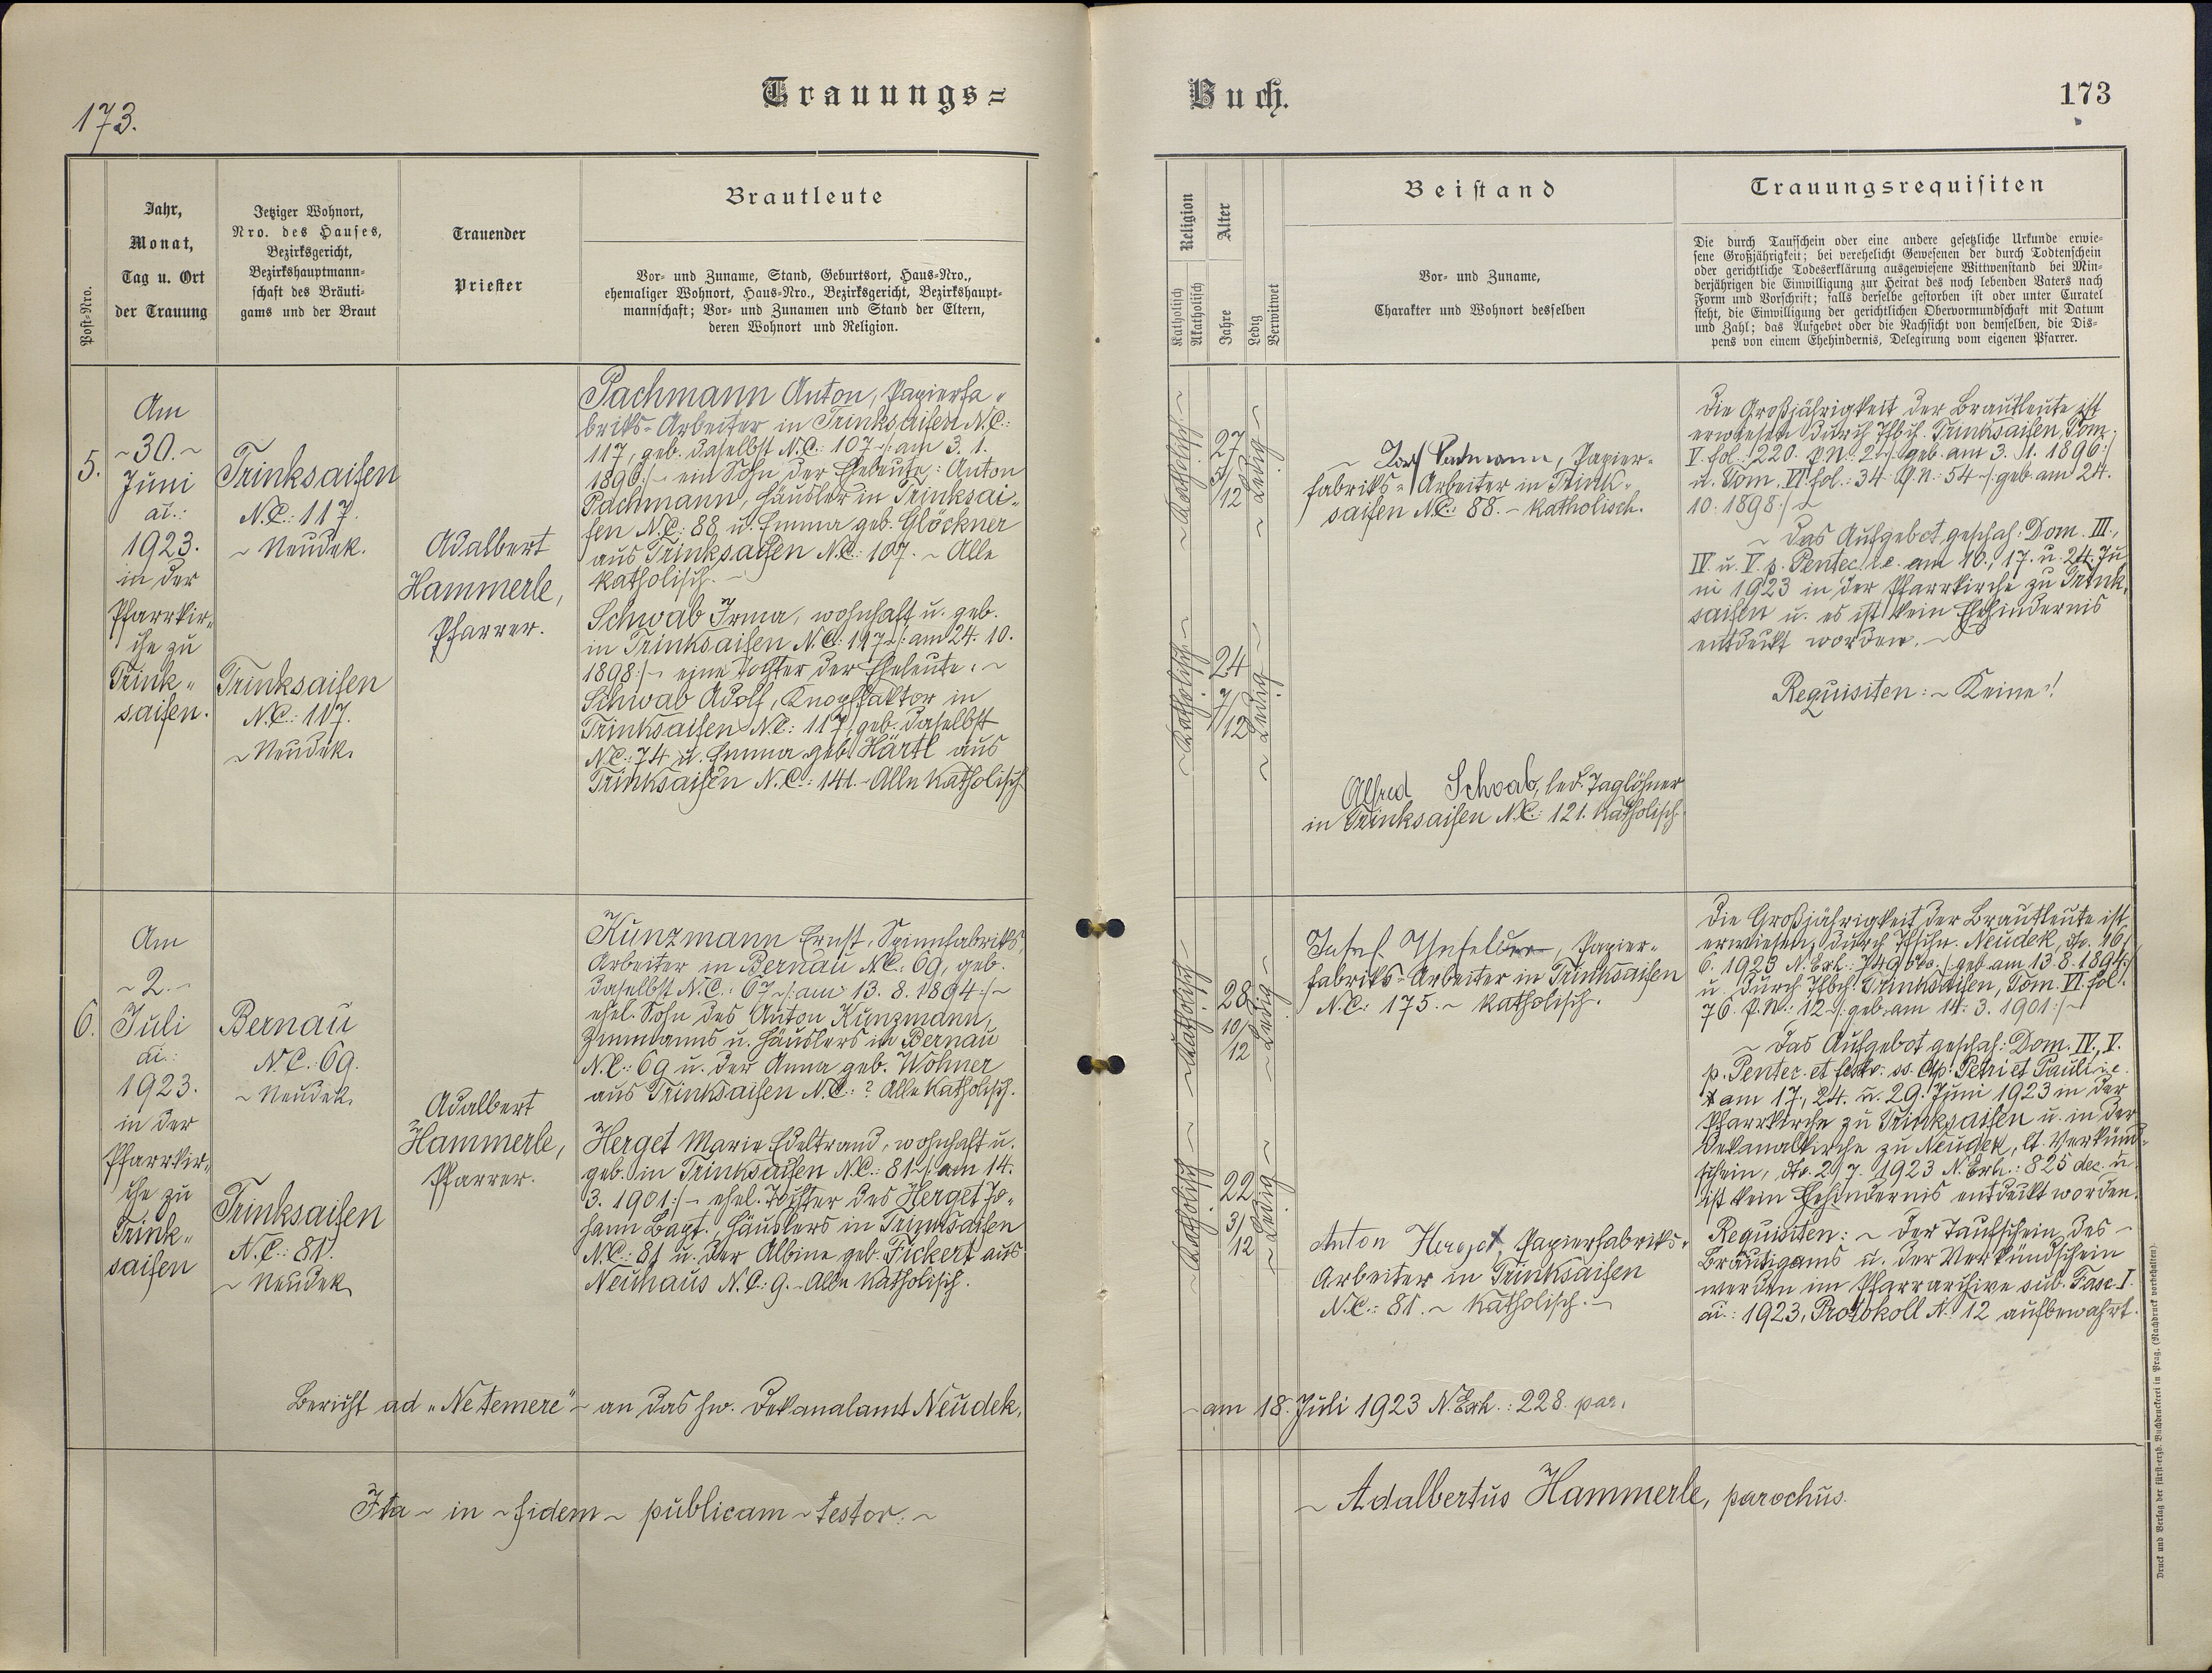 173.
Trauungs=
Post=Nro.
Jahr,
Monat,
Tag u. Ort
der Trauung
Jetziger Wohnort,
Nro. des Hauses,
Bezirksgericht,
Bezirkshauptmann=
schaft des Bräuti=
gams und der Braut
Trauender
Priester
Brautleute
Vor= und Zuname, Stand, Geburtsort, Haus=Nro.,
ehemaliger Wohnort, Haus=Nro., Bezirksgericht, Bezirkshaupt=
mannschaft; Vor= und Zunamen und Stand der Eltern,
deren Wohnort und Religion.
5.
Am
~30.~
Juni
ai.:
1923.
in der
Pfarrkir„
che zu
Trink„
saifen.
Trinksaifen
N.C.: 117.
~ Neudek.
Trinksaifen
N.C.: 117.
~ Neudek.
Adalbert
Hammerle,
Pfarrer.
Pachmann Anton, Papierfa„
briks=Arbeiter in Trinksaifen N.C.:
117, geb. daselbst N.C.: 107 ~/: am 3. 1.
1896 :/~ ein Sohn der Eheleute: Anton
Pachmann, Häusler in Trinksai„
fen N.C.: 88 u. Emma geb. Glöckner
aus Trinksaifen N.C.: 107. ~ Alle
katholisch. ~
Schwab Irma, wohnhaft u. geb.
in Trinksaifen N.C.: 117 ~/: am 24. 10.
1898 :/~ eine Tochter der Eheleute: ~
Schwab Adolf, Knopffaktor in
Trinksaifen N.C.: 117, geb. daselbst
N.C.: 74 u. Emma geb. Härtl aus
Trinksaifen N.C.: 141. ~ Alle katholisch
6.
Am
~ 2. ~
Juli
ai.:
1923.
in der
Pfarrkir„
che zu
Trink„
saifen
Bernau
N.C.: 69.
~ Neudek.
Trinksaifen
N.C.: 81.
~ Neudek
Adalbert
Hammerle,
Pfarrer.
Kunzmann Ernst, Spinnfabriks„
Arbeiter in Bernau N.C.: 69, geb.
daselbst N.C.: 67 ~/: am 13. 8. 1894 :/~
ehel. Sohn des Anton Kunzmann,
Zimmanns u. Häuslers in Bernau
N.C.: 69 u. der Anna geb. Wohner
aus Trinksaifen N.C.: ? Alle katholisch.
Herget Marie Edeltraud, wohnhaft u.
geb. in Trinksaifen N.C.: 81 ~/: am 14.
3. 1901 :/~ ehel. Tochter des Herget Jo„
hann Bapt. Häuslers in Trinksaifen
N.C.: 81 u. der Albine geb. Fickert aus
Neuhaus N.C.: 9. ~ Alle katholisch.
Bericht ad „Ne temere" ~ an das hw. Dekanalamt Neudek,
Ita ~ in ~ fidem ~ publicam ~ testor. ~
Buch.
173
Religion
Katholisch
Akatholisch
Alter
Jahre
Ledig
Verwitwet
Beistand
Vor= und Zuname,
Charakter und Wohnort desselben
Trauungsrequisiten
Die durch Taufschein oder eine andere gesetzliche Urkunde erwie=
sene Großjährigkeit; bei verehelicht Gewesenen der durch Todtenschein
oder gerichtliche Todeserklärung ausgewiesene Wittwenstand bei Min=
derjährigen die Einwilligung zur Heirat des noch lebenden Vaters nach
Form und Vorschrift; falls derselbe gestorben ist oder unter Curatel
steht, die Einwilligung der gerichtlichen Obervormundschaft mit Datum
und Zahl; das Aufgebot oder die Nachsicht von demselben, die Dis=
pens von einem Ehehindernis, Delegirung vom eigenen Pfarrer.
~ Katholisch ~
27
5/12
~ Ledig ~
~ Katholisch ~
24
7/12
~ Ledig ~
Pachmann, Papier=
fabriks=Arbeiter in Trink„
saifen N.C.: 88. ~ Katholisch.
Alfred Schwab, led. Taglöhner
in Trinksaifen N.C.: 121. Katholisch.
Die Großjährigkeit der Brautleute ist
erwiesen durch Tfbch. Trinksaifen, Tom.
V. fol.: 220. P.N.: 2 ~/: geb. am 3. 1. 1896 :/
u. Tom. VI. fol.: 34 P.n.: 54 ~/: geb. am 24.
10. 1898 :/~
~ Das Aufgebot geschah: Dom. III.,
IV. u. V. p. Pentec. i.e. am 10., 17. u. 24. Ju
ni 1923 in der Pfarrkirche zu Trink„
saifen u. es ist kein Ehehindernis
entdeckt worden. ~
Requisiten: ~ Keine!
~ Katholisch ~
28
10/12
~ Ledig ~
~ Katholisch ~
22
3/12
~ Ledig ~
Josef, Papier=
fabriks=Arbeiter in Trinksaifen
N.C.: 175. ~ Katholisch.
Anton Herget, Papierfabriks„
Arbeiter in Trinksaifen
N.C.: 81. ~ Katholisch. ~
Die Großjährigkeit der Brautleute ist
erwiesen, durch Tfschn. Neudek, dto. 16/
6. 1923 N. Exh.: 749 /: geb. am 13. 8. 1894 :/
u. durch Tfbch. Trinksaifen, Tom. VI. fol.
76. P.N.: 12 ~/: geb. am 14. 3. 1901 :/~
~ Das Aufgebot geschah: Dom. IV., V.
p. Pentec. et festo: ss. Ap. Petri et Pauli i.e.
am 17., 24. u. 29. Juni 1923 in der
Pfarrkirche zu Trinksaifen u. in der
Dekanalkirche zu Neudek, lt. Verkünd=
schein, dto. 2/7. 1923 N. Exh.: 825 dec. u.
ist kein Ehehindernis entdeckt worden.
Requisiten: ~ Der Taufschein des ~
Bräutigams u. der Verkündschein
werden im Pfarrarchive sub. Fasc. I.
ai.: 1923, Protokoll N. 12 aufbewahrt.
~ am 18. Juli 1923 N. Exh.: 228. par.
~ Adalbertus Hammerle, parochus.
Druck und Verlag der fürst=erzb. Buchdruckerei in Prag. (Nachdruck vorbehalten).